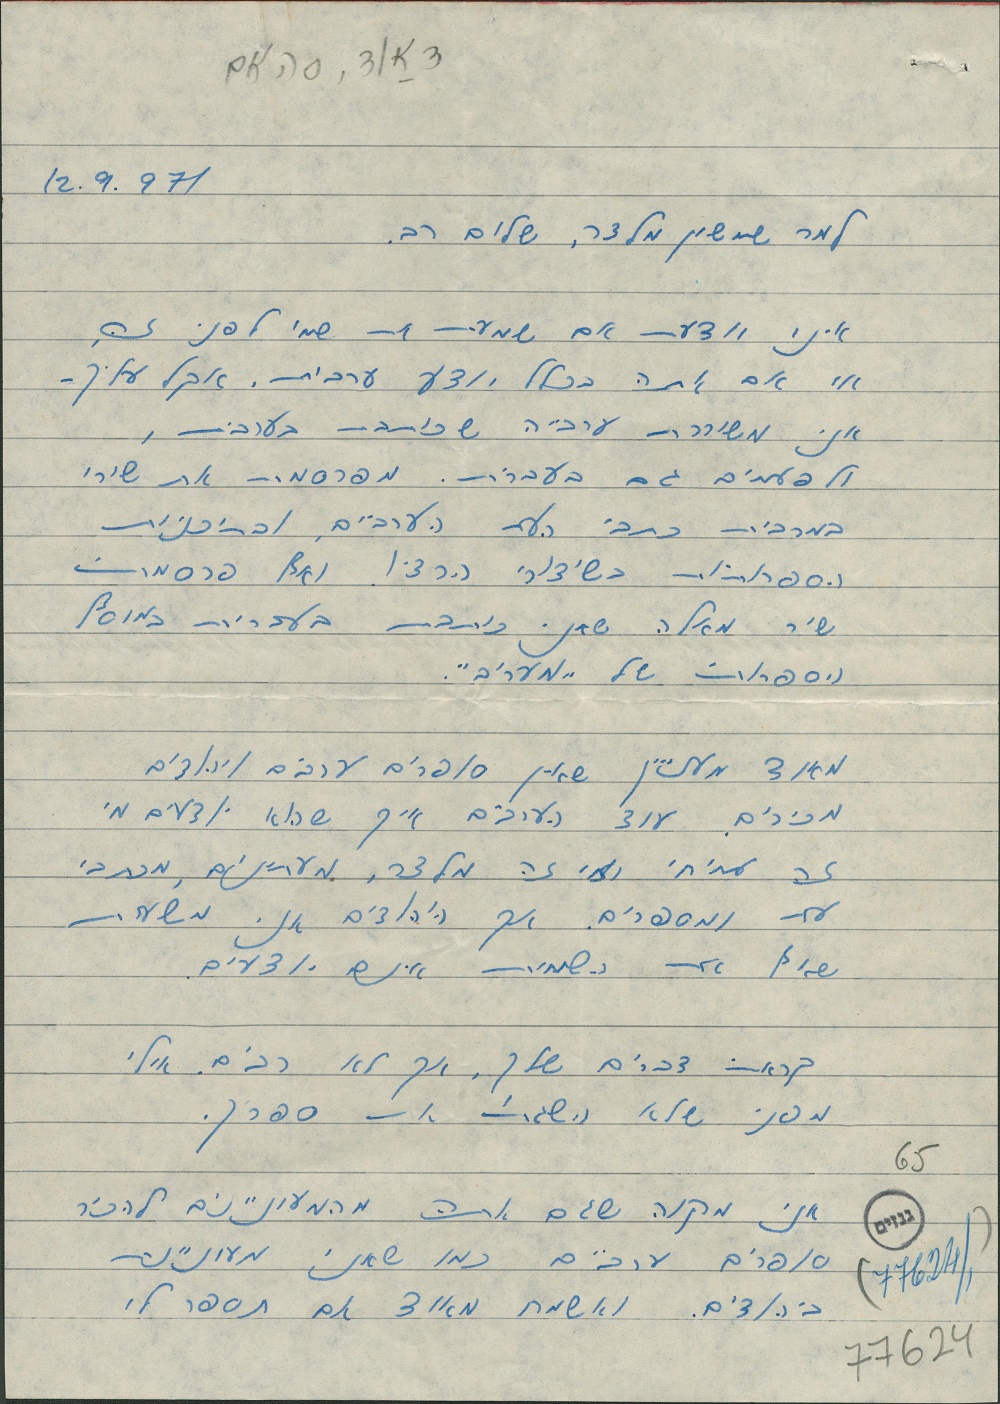 דאוד, סהאם
12.9.971
למר שמשון מלצר, שלום רב.
אינני יודעת אם שמעת את שמי לפני זה,
או אם אתה בכלל יודע ערבית. אבל עליך -
אני משוררת ערביה שכותבת בערבית,
ולפעמים גם בעברית. מפרסמת את שירי
במרבית כתבי העת הערביים, ובתיכניות
הספרותיות בשידורי הרדיו. ואף פרסמתי
שיר מאלה שאני כותבת בעברית במוסף
הספרותי של "מעריב".
מאוד מעניין שאין סופרים ערבים ויהודים
מכירים. עוד הערבים איך שהוא יודעים מי
זה עמיחי ומי זה מלצר, מעיתונים, מכתבי
עת ומספרים. אך היהודים אני משערת
שאף את השמות אינם יודעים.
קראתי דברים שלך, אך לא רבים. אולי
מפני שלא השגתי את ספריך.
אני מקוה שגם אתה מהמעוניינים להכיר
סופרים ערביים כמו שאני מעוניינת
ביהודים. ואשמח מאוד אם תספר לי
65
גנזים
(77624/1)
77624